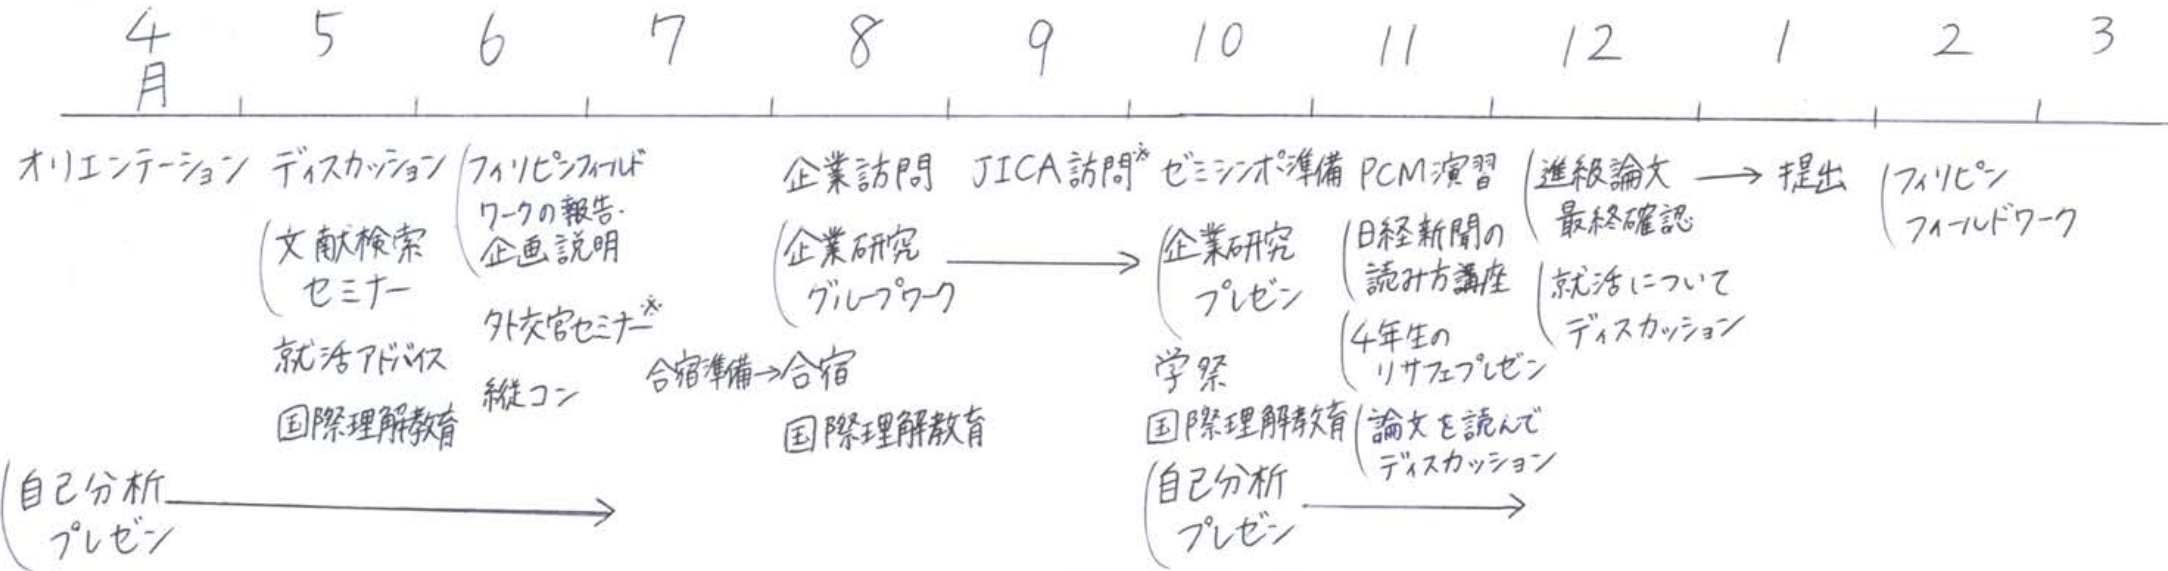 4月 5 6 7 8 9 10 11 12 1 2 3
オリエンテーション
自己分析
プレゼン
ディスカッション
文献検索
セミナー
就活アドバイス
国際理解教育
フィリピンフィールド
ワークの報告・
企画説明
外交官セミナー※
縦コン
合宿準備→合宿
企業訪問
企業研究
グループワーク
国際理解教育
JICA訪問※
ゼミシンポ準備
企業研究
プレゼン
学祭
国際理解教育
自己分析
プレゼン
PCM演習
日経新聞の
読み方講座
4年生の
リサフェプレゼン
論文を読んで
ディスカッション
進級論文 → 提出
最終確認
就活について
ディスカッション
フィリピン
フィールドワーク